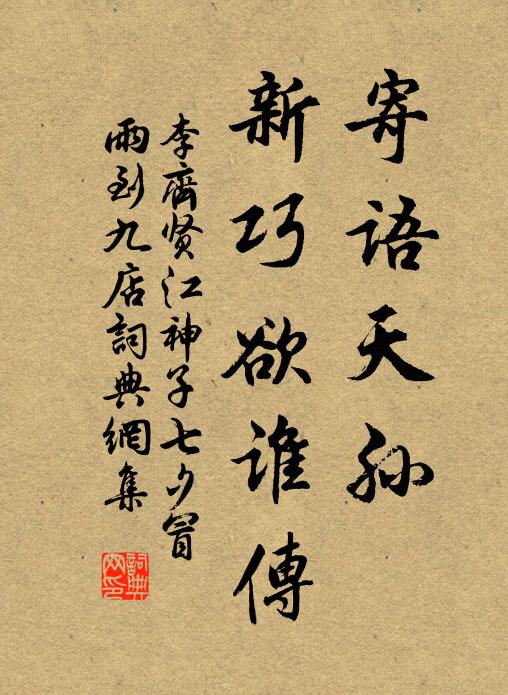 寄語天孙
新巧欲谁傳
李齊贤江神子七夕冒
雨到九店詞典網集
詞典
网印